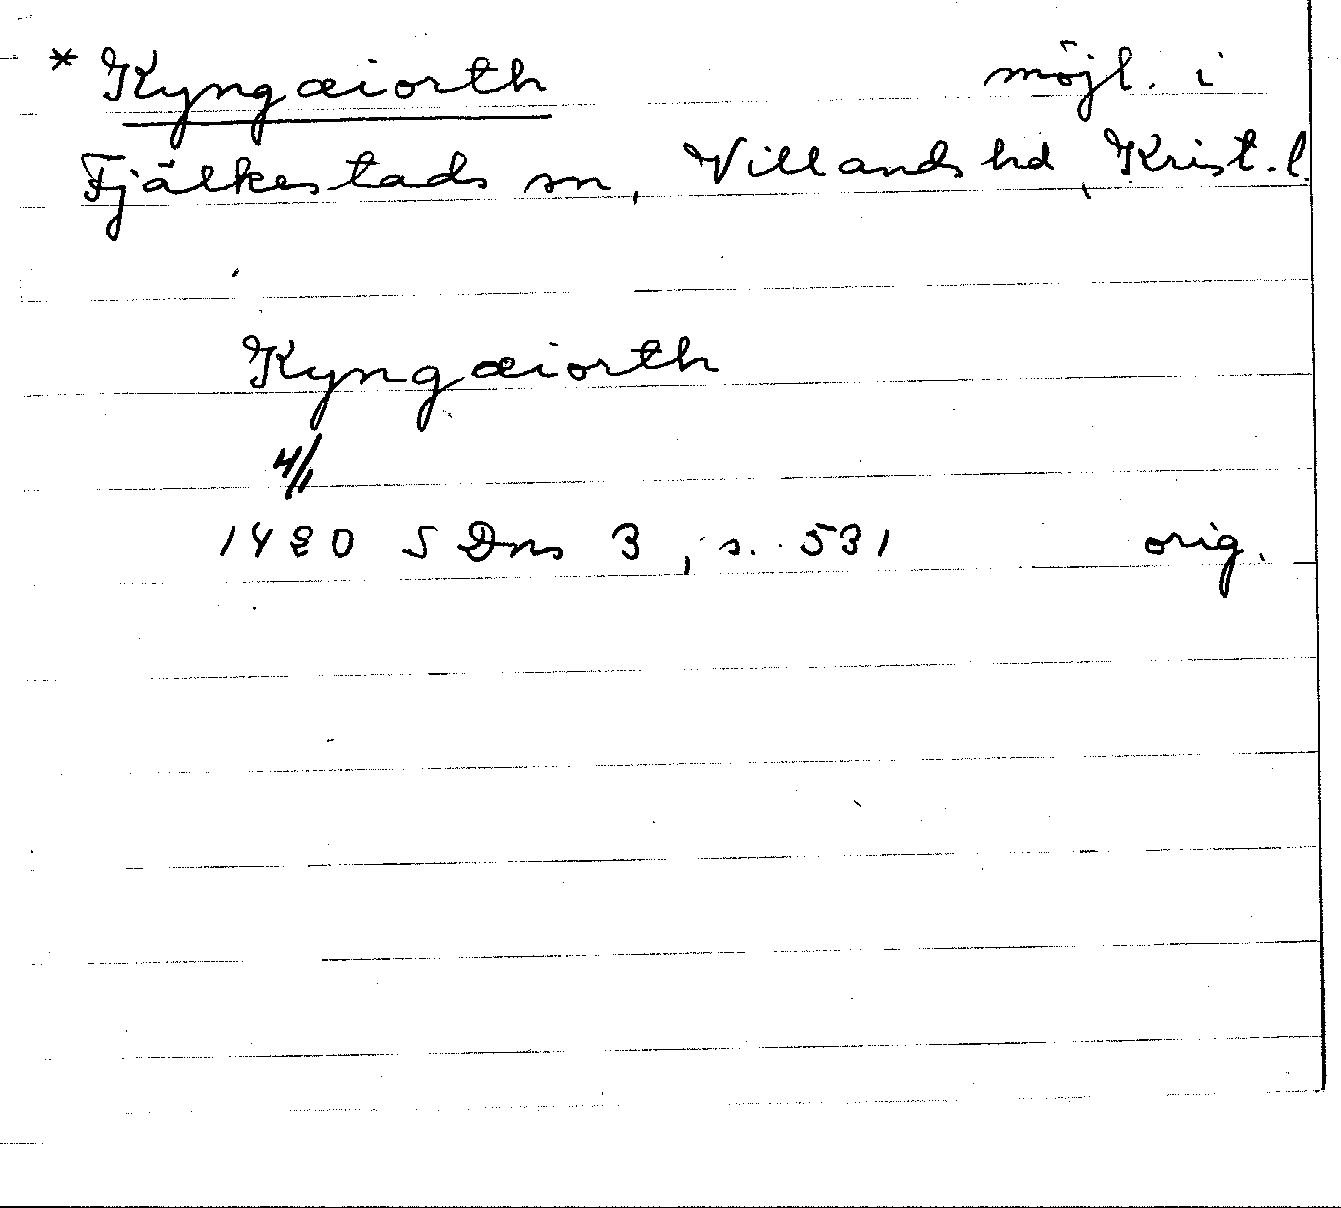 * Kyngæiorth möjl. i
Fjälkestads sn, Villands hd, Krist. l.
Kyngæiorth
4/1
1420 SDns 3, s. 531 orig.